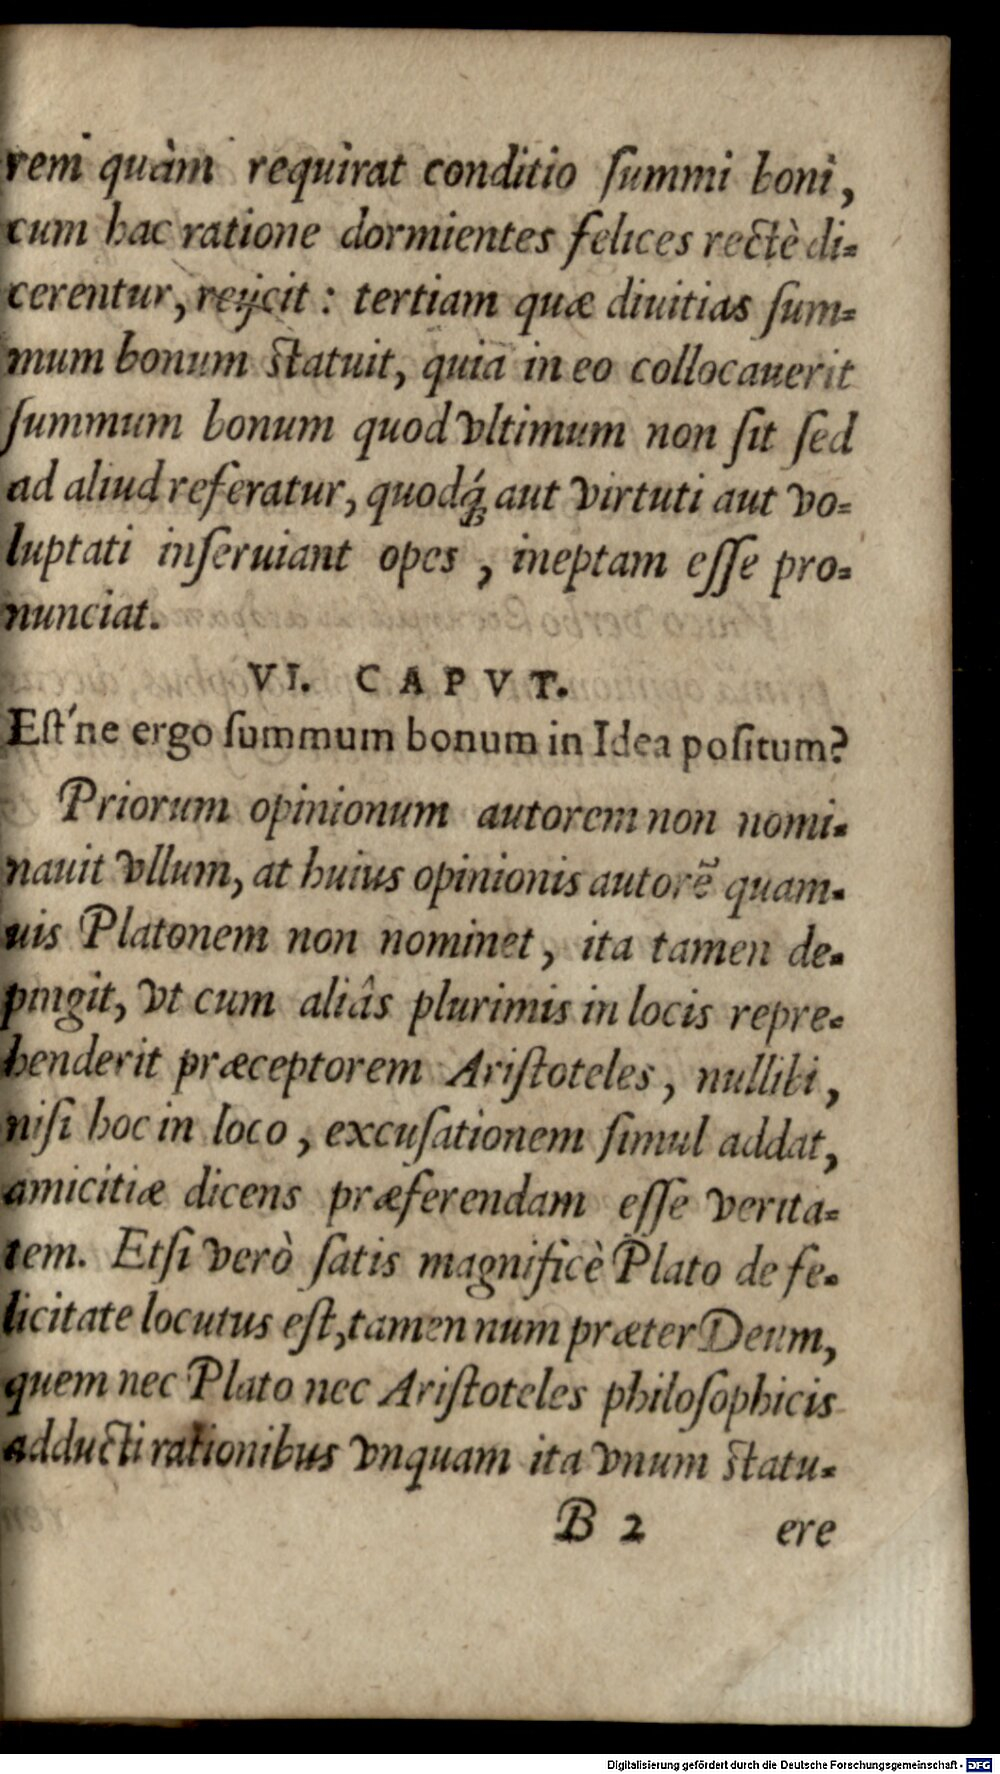 rem quàm requirat conditio ſummi boni,
cum hac ratione dormientes felices rectè di=
cerentur, reijcit: tertiam quæ diuitias ſum=
mum bonum ſtatuit, quia in eo collocauerit
ſummum bonum quod vltimum non ſit ſed
ad aliud referatur, quodq́ꝫ aut virtuti aut vo=
luptati inſeruiant opes, ineptam eſſe pro=
nunciat.
VI. CAPVT.
Eſt'ne ergo ſummum bonum in Idea poſitum?
Priorum opinionum autorem non nomi=
nauit vllum, at huius opinionis autorẽ quam=
uis Platonem non nominet, ita tamen de=
pingit, vt cum aliâs plurimis in locis repre=
henderit præceptorem Ariſtoteles, nullibi,
niſi hoc in loco, excuſationem ſimul addat,
amicitiæ dicens præferendam eſſe verita=
tem. Etſi verò ſatis magnificè Plato de fe=
licitate locutus eſt, tamen num præter Deum,
quem nec Plato nec Ariſtoteles philoſophicis
adducti rationibus vnquam ita vnum ſtatu=
B 2 ere
Digitalisierung gefördert durch die Deutsche Forschungsgemeinschaft - DFG